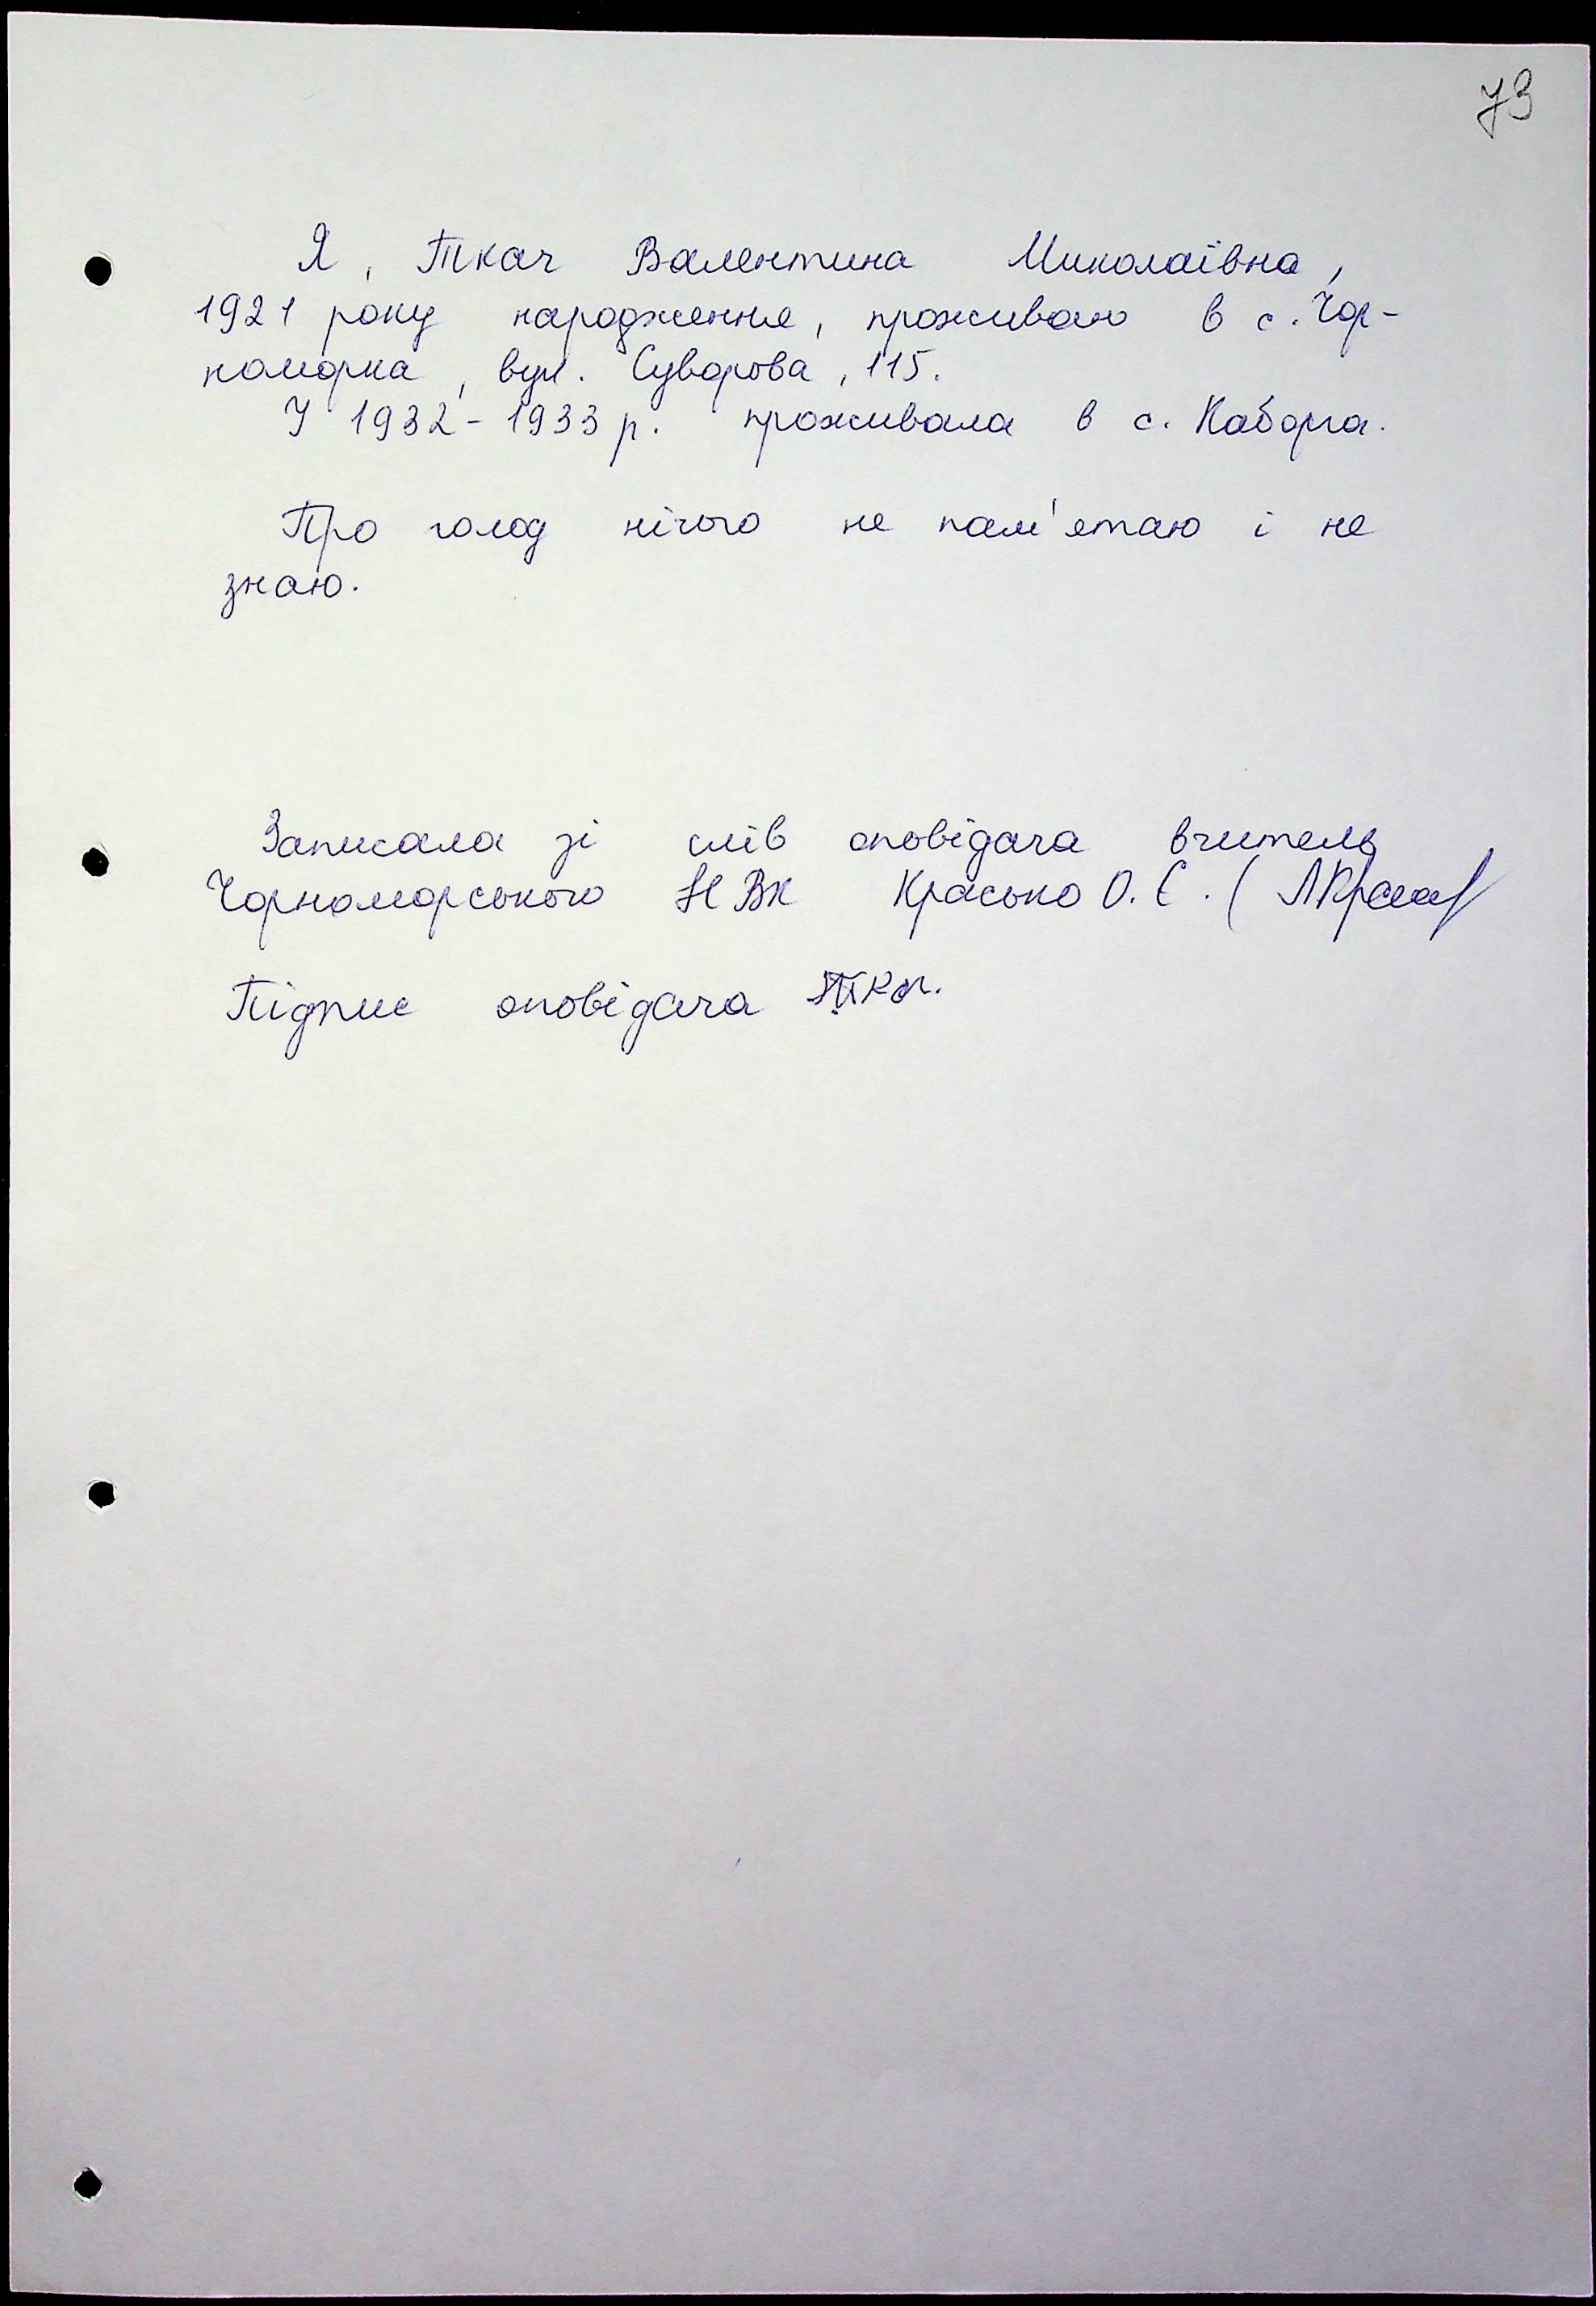 73
Я, Ткач Валентина Миколаївна,
1921 року народження, проживаю в с. Чор-
номорка, вул. Суворова, 115.
У 1932-1933 р. проживала в с. Каборга.
Про голод нічого не пам'ятаю і не
знаю.
Записала зі слів оповідача вчитель
Чорноморського НВК Красько О. Є. (
Підпис оповідача